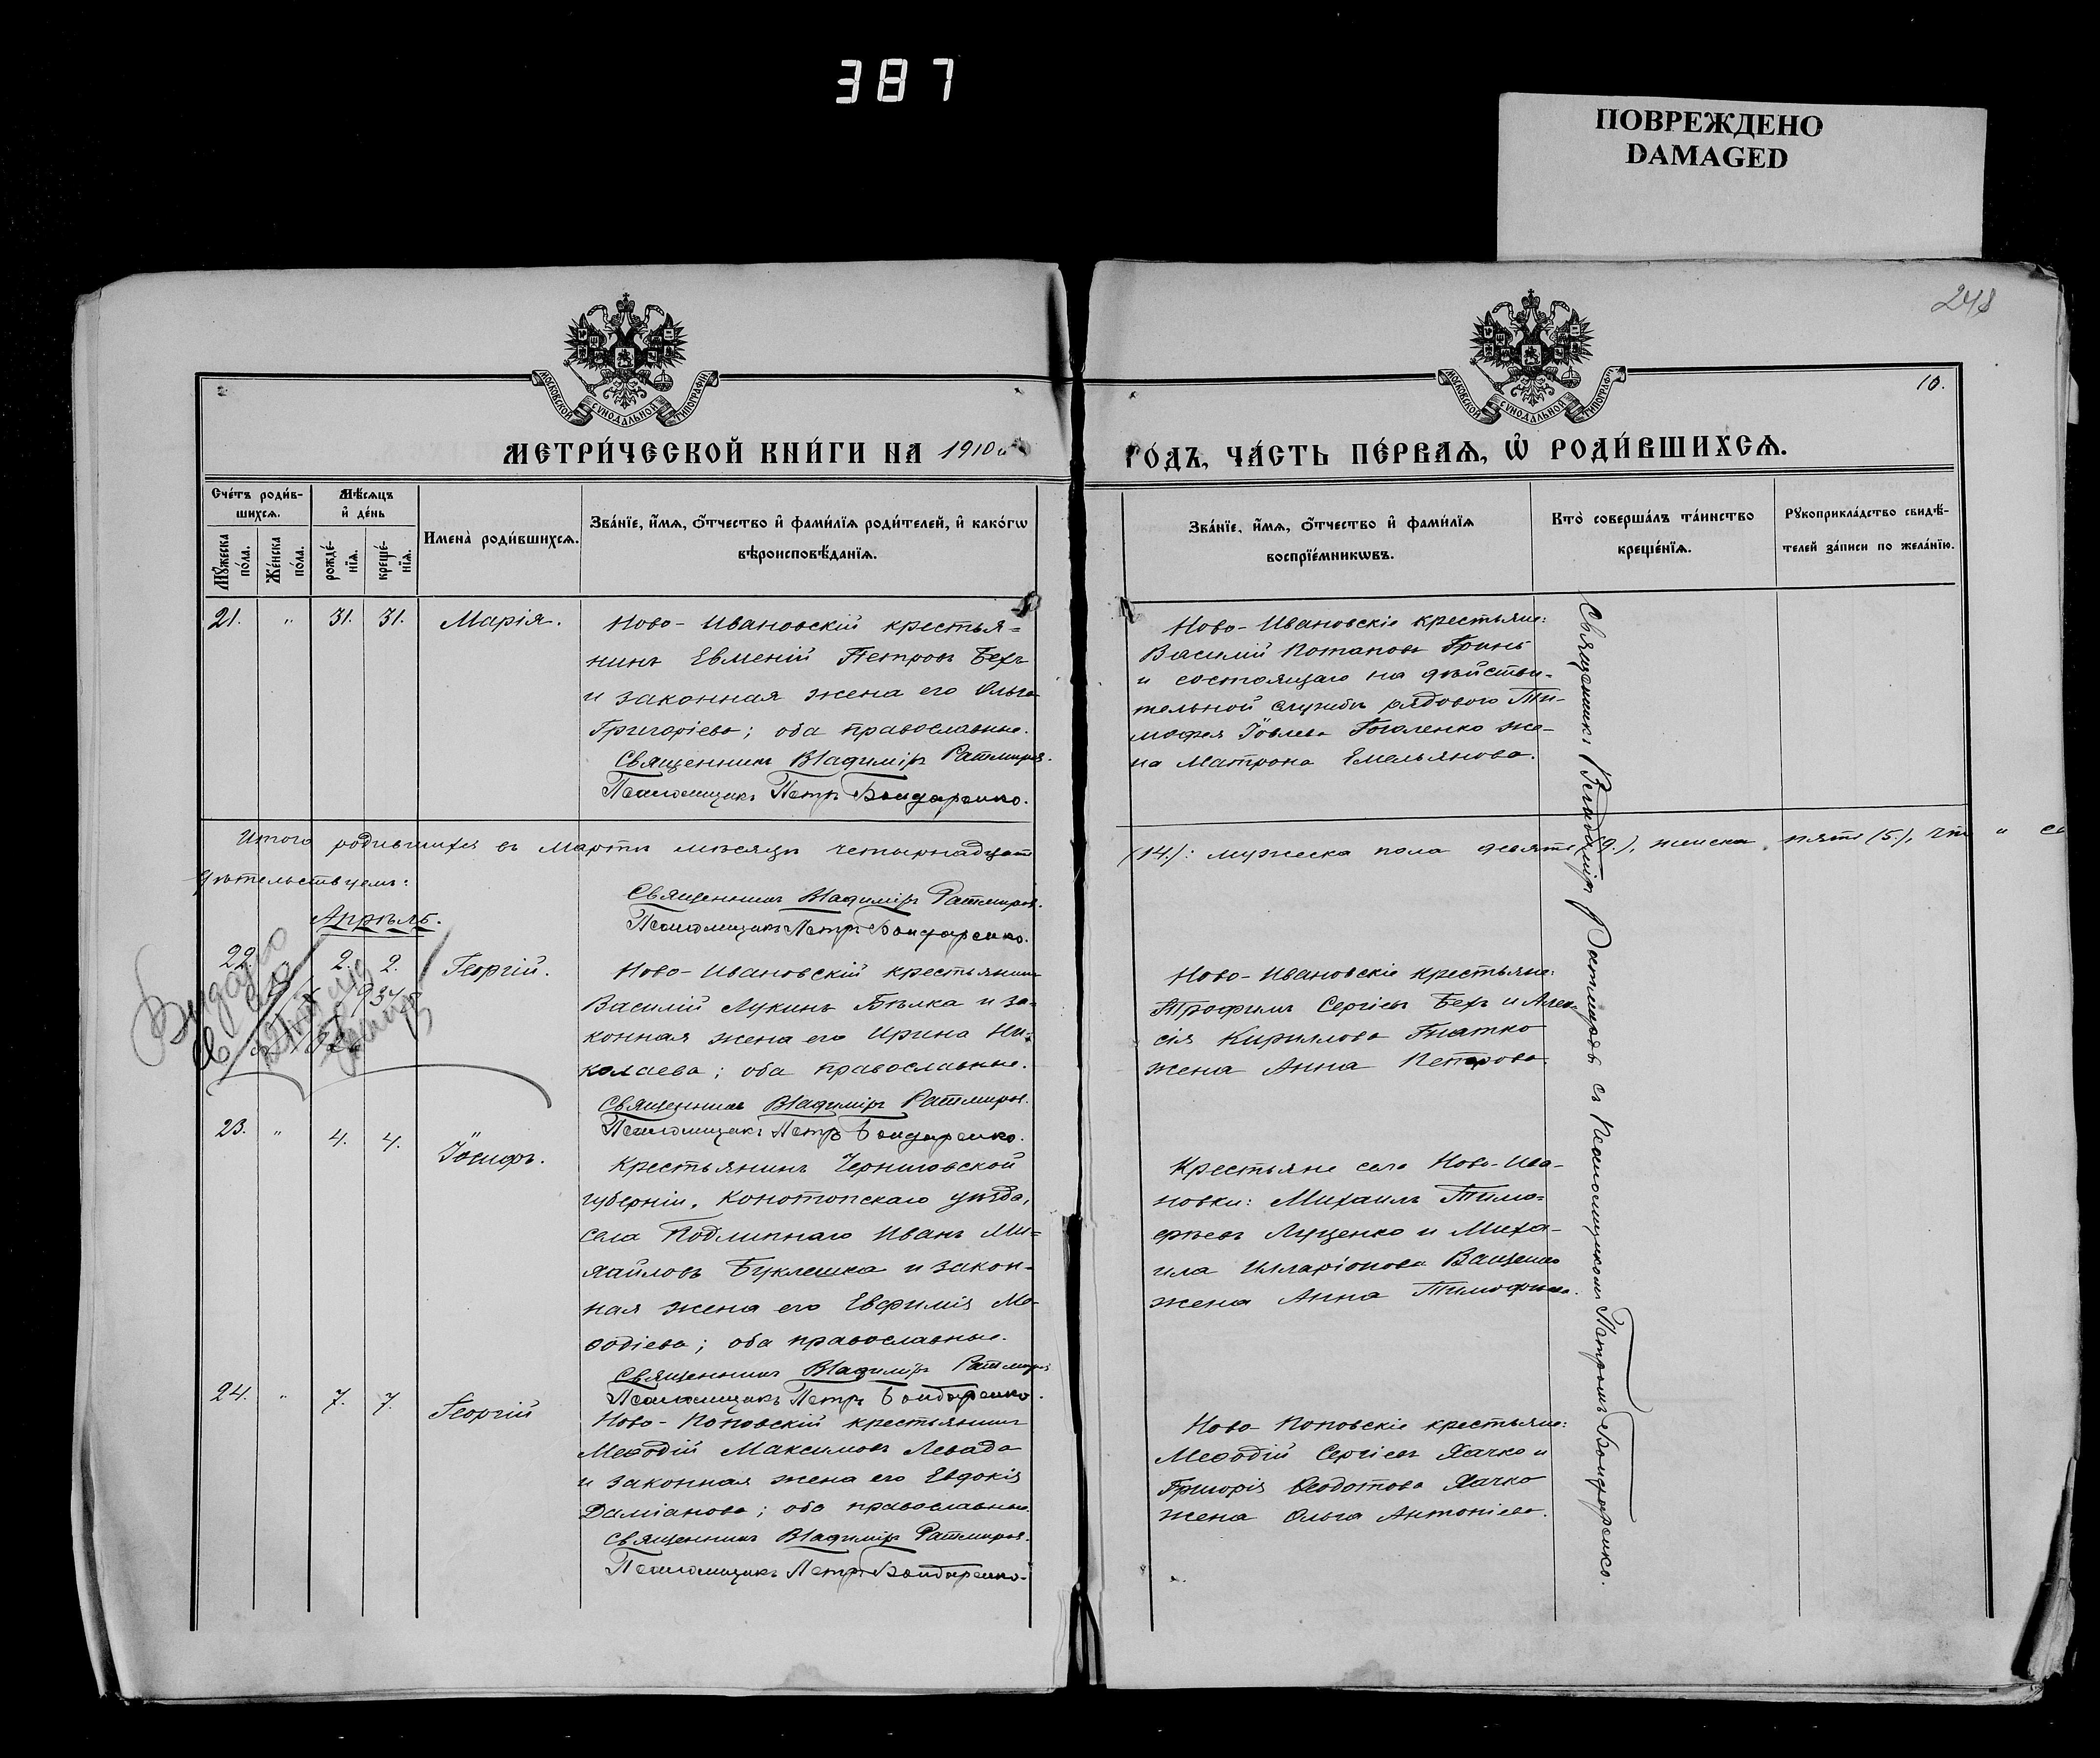 387
ПОВРЕЖДЕНО
DAMAGED
248
10.
МОСКОВСКОЙ СУНОДАЛЬНОЙ ТИПОГРАФІИ
МОСКОВСКОЙ СУНОДАЛЬНОЙ ТИПОГРАФІИ
МЕТРИ́ЧЕСКОЙ КНИ́ГИ НА 1910й
ГО́ДЪ, ЧА́СТЬ ПЕ́РВАѦ, Ѽ РОДИ́ВШИХСѦ.
Сче́тъ роди́в-
шихсѧ.
Мꙋ́жеска по́ла.
Же́нска по́ла.
Мѣ́сѧцъ
и҆ де́нь
рожде́-
нїѧ.
креще́-
нїѧ.
Имена̀ роди́вшихсѧ.
Зва́нїе, и҆́мѧ, ѻ҆́тчество и҆ фами́лїѧ роди́телей, и҆ како́гѡ
вѣроисповѣ́данїѧ.
Зва́нїе, и҆́мѧ, ѻ҆́тчество и҆ фами́лїѧ
воспрїе́мникѡвъ.
Кто̀ соверша́лъ та́инство
креще́нїѧ.
Рꙋкоприкла́дство свидѣ́-
телей за́писи по жела́нїю.
21. " 31. 31. Марія.
Ново-Ивановскій крестья=
нинъ Евменій Петровъ Бехъ
и законная жена его Ольга
Григоріева; оба православные.
Священникъ Владиміръ Ратмировъ.
Псаломщикъ Петръ Бондаренко.
Ново-Ивановскіе крестьяне:
Василій Потаповъ Гринь
и состоящаго на дѣйстви-
тельной службѣ рядового Ти-
мофея Іовлева Гоголенко же-
на Матрона Емельянова.
Итого родившихся въ Мартѣ мѣсяцѣ четырнадцать
(14.): мужеска пола девять (9.), женска пять (5.), что и сви
дѣтельствуемъ:
Священникъ Владиміръ Ратмировъ.
Псаломщикъ Петръ Бондаренко.
Апрѣль.
22. 2. 2. Георгій.
Выдано
Ново-Ивановскій крестьянинъ
Василій Лукинъ Бѣлка и за-
конная жена его Ирина Ни-
колаева; оба православные.
Священникъ Владиміръ Ратмировъ.
Псаломщикъ Петръ Бондаренко.
Ново-Ивановскіе крестьяне:
Трофимъ Сергіевъ Бехъ и Алек-
сія Кириллова Гнатко
жена Анна Петрова.
23. " 4. 4. Іосифъ.
Крестьянинъ Черниговской
губерніи, Конотопскаго уѣзда,
села Подлипнаго Иванъ Ми=
хайловъ Буклешка и закон-
ная жена его Евфимія Ме-
ѳодіева; оба православные.
Священникъ Владиміръ Ратмировъ
Псаломщикъ Петръ Бондаренко.
Крестьяне села Ново-Ива-
новки: Михаилъ Тимо=
ѳеевъ Луценко и Миха-
ила Илларіонова Ващенко
жена Анна Тимофеева.
24. " 7. 7. Георгій
Ново-Поповскій крестьянинъ
Меѳодій Максимовъ Левада
и законная жена его Евдокія
Даміанова; оба православные.
Священникъ Владиміръ Ратмировъ.
Псаломщикъ Петръ Бондаренко.
Ново-Поповскіе крестьяне:
Меѳодій Сергіевъ Хачко и
Григорія Ѳеодотова Хачко
жена Ольга Антоніева.
Священникъ Владиміръ Ратмировъ съ псаломщикомъ Петромъ Бондаренко.